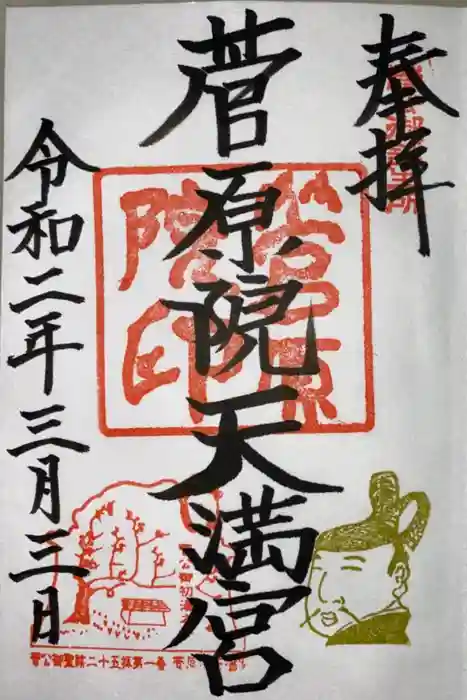 奉拝
菅原院天満宮
令和二年三月三日
菅原院印
菅公御聖蹟二十五拝第一番 菅原